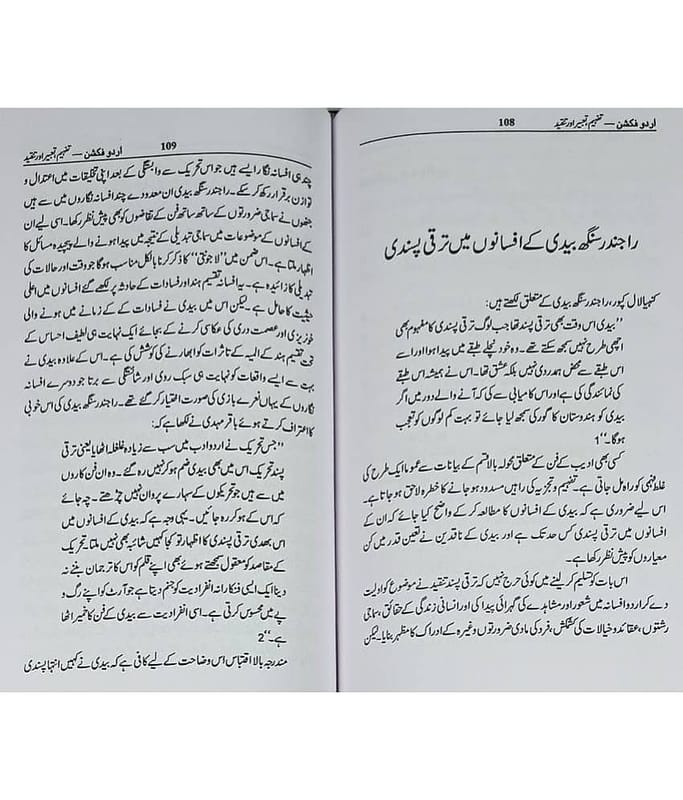 اردو فکشن — تفہیم، تعبیر اور تنقید 108
راجندر سنگھ بیدی کے افسانوں میں ترقی پسندی
کنہیا لال کپور، راجندر سنگھ بیدی کے متعلق لکھتے ہیں:
’’بیدی اس وقت بھی ترقی پسند تھا جب لوگ ترقی پسندی کا مفہوم بھی
اچھی طرح نہیں سمجھ سکتے تھے۔ وہ خود نچلے طبقے میں پیدا ہوا اور اسے
اس طبقے سے محض ہمدردی نہیں بلکہ عشق تھا۔ اس نے ہمیشہ اس طبقے
کی نمائندگی کی ہے اور اس کامیابی سے کی کہ آنے والے دور میں اگر
بیدی کو ہندوستان کا گورکی سمجھ لیا جائے تو بہت کم لوگوں کو تعجب
ہوگا۔‘‘1
کسی بھی ادیب کے فن کے متعلق محولہ بالا قسم کے بیانات سے عموماً ایک طرح کی
غلط فہمی کو راہ مل جاتی ہے۔ تفہیم و تجزیہ کی راہیں مسدود ہو جانے کا خطرہ لاحق ہو جاتا ہے۔
اس لیے ضروری ہے کہ بیدی کے افسانوں کا مطالعہ کر کے واضح کیا جائے کہ ان کے
افسانوں میں ترقی پسندی کس حد تک ہے اور بیدی کے ناقدین نے تعین قدر میں کن
معیاروں کو پیش نظر رکھا ہے۔
اس بات کو تسلیم کر لینے میں کوئی حرج نہیں کہ ترقی پسند تنقید نے موضوع کو اولیت
دے کر اردو افسانہ میں شعور اور مشاہدے کی گہرائی پیدا کی اور انسانی زندگی کے حقائق، سماجی
رشتوں، عقائد و خیالات کی کشمکش، فرد کی مادی ضرورتوں وغیرہ کے ادراک کا مظہر بنایا۔ لیکن
اردو فکشن — تفہیم، تعبیر اور تنقید 109
چند ہی افسانہ نگار ایسے ہیں جو اس تحریک سے وابستگی کے بعد اپنی تخلیقات میں اعتدال و
توازن برقرار رکھ سکے۔ راجندر سنگھ بیدی ان معدودے چند افسانہ نگاروں میں سے ہیں
جنھوں نے سماجی ضرورتوں کے ساتھ ساتھ فن کے تقاضوں کو بھی پیش نظر رکھا۔ اسی لیے ان
کے افسانوں کے موضوعات میں سماجی تبدیلی کے نتیجہ میں پیدا ہونے والے پیچیدہ مسائل کا
اظہار ملتا ہے۔ اس ضمن میں ’’لاجونتی‘‘ کا ذکر کرنا بالکل مناسب ہوگا جو وقت اور حالات کی
تبدیلی کا زائیدہ ہے۔ یہ افسانہ تقسیم ہند اور فسادات کے حادثہ پر لکھے گئے افسانوں میں اعلیٰ
حیثیت کا حامل ہے۔ لیکن اس میں بیدی نے فسادات کے زمانے میں ہونے والی
خونریزی اور عصمت دری کی عکاسی کرنے کے بجائے ایک نہایت ہی لطیف احساس کے
تحت تقسیم ہند کے المیہ کے تاثرات کو ابھارنے کی کوشش کی ہے۔ اس کے علاوہ بیدی نے
بہت سے ایسے واقعات کو نہایت ہی سبک روی اور شائستگی سے برتا جو دوسرے افسانہ
نگاروں کے یہاں نعرے بازی کی صورت اختیار کر گئے تھے۔ راجندر سنگھ بیدی کی اس خوبی
کا اعتراف کرتے ہوئے باقر مہدی نے لکھا ہے کہ:
’’جس تحریک نے اردو ادب میں سب سے زیادہ غلغلہ اٹھایا یعنی ترقی
پسند تحریک اس میں بھی بیدی ضم ہو کر نہیں رہ گئے۔ وہ ان فن کاروں
میں سے ہیں جو تحریکوں کے سہارے پروان نہیں چڑھتے۔ چہ جائے
کہ اس کے ہو کر رہ جائیں۔ یہی وجہ ہے کہ بیدی کے افسانوں میں
اس بھدی ترقی پسندی کا اظہار تو کجا کہیں شائبہ بھی نہیں ملتا تحریک
کے مقاصد کو معقول سمجھتے ہوئے بھی اپنے قلم کو اس کا ترجمان بننے نہ
دینا ایک ایسی فنکارانہ انفرادیت کو جنم دیتا ہے جو آرٹ کو اپنے رگ و
پے میں محسوس کرتی ہے۔ اسی انفرادیت سے بیدی کے فن کا خمیر اٹھا
ہے۔‘‘2
مندرجہ بالا اقتباس اس وضاحت کے لیے کافی ہے کہ بیدی نے کہیں انتہا پسندی